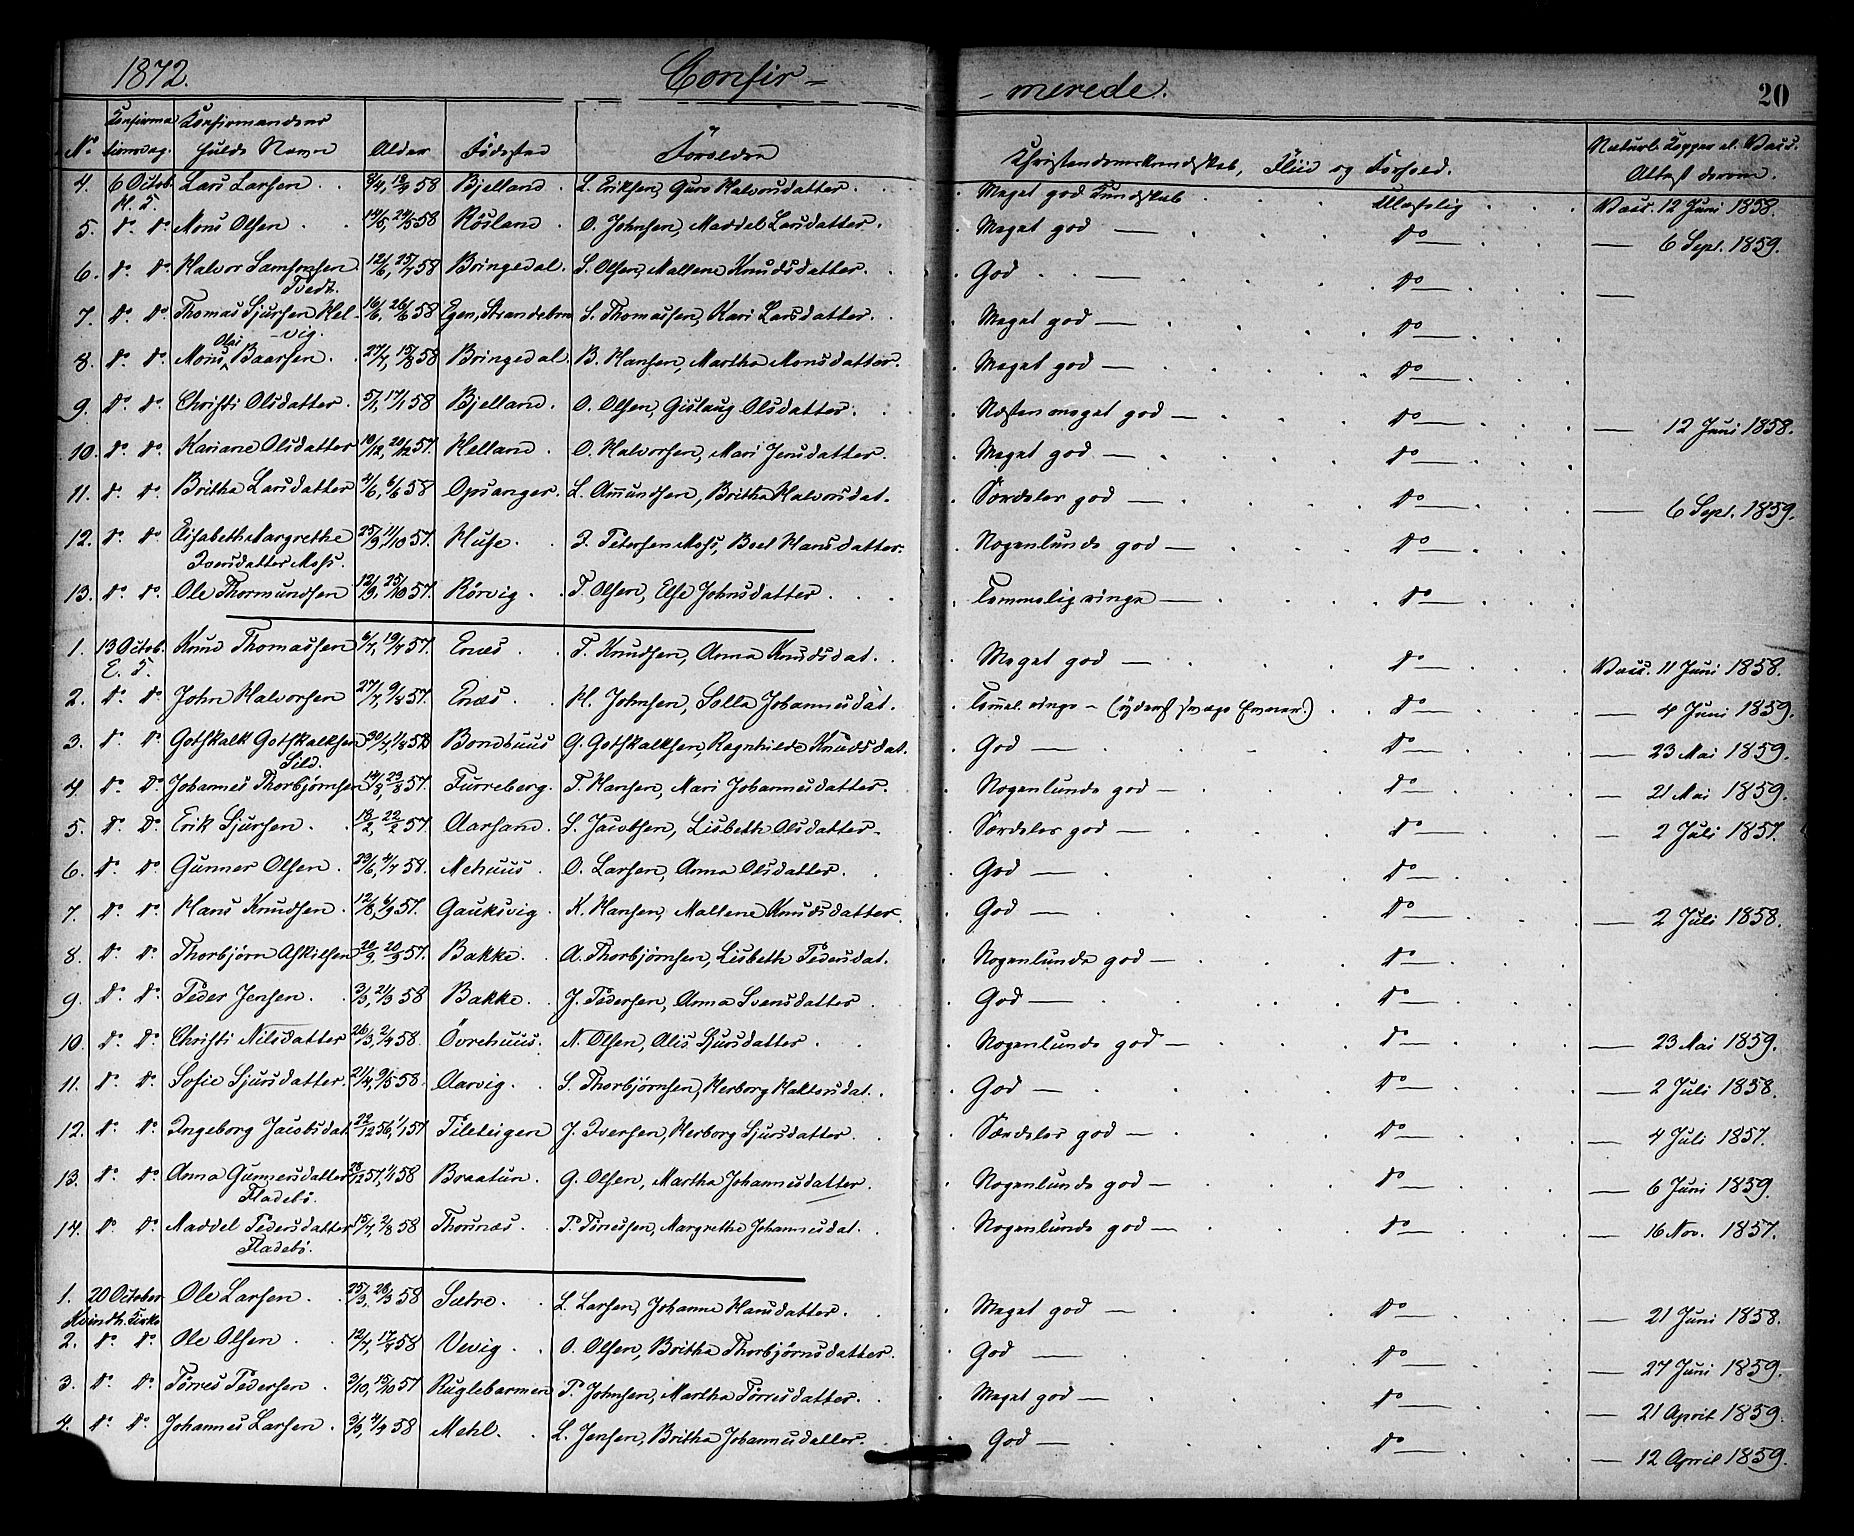 1872. Confir- -merede. 20
No Konfirmationsdag. Konfirmandens fulde Navn Alder Fødested Forældre Christendomskundskab, Flid og Forhold. Naturl. Kopper el. Vacc. Attest derom.
4. 6 Octob. Lars Larsen 58 Bjelland L. Eriksen, Guro Halvorsdatter. Meget god Kundskab Vacc. 12 Juni 1858.
5. do do Mons Olsen 58 Røsland O. Johnsen, Maddel Larsdatter. Meget god — do — 6 Sept. 1859.
6. do do Halvor Samsonsen 58 Bringedal. S. Olsen, Mallene Knudsdatter. God — do —
Tvedt.
7. do do Thomas Sjursen Hel- 16/6, 26/6 58 Egen, Strandebrm S. Thomassen, Kari Larsdatter. Meget god — do
-vig.
8. do do Mons Olai Baarsen. 58 Bringedal. B. Hansen, Martha Monsdatter. Meget god — do
9. do do Christi Olsdatter. 58 Bjelland. O. Olsen, Gislaug Olsdatter. Næsten meget god — do — 12 Juni 1858.
10. do do Kariane Olsdatter 10/12, 20/12 57. Helland O. Halvorsen, Mari Jensdatter. Meget god — do
11. do do Britha Larsdatter 58 Opsanger. L. Amundsen, Britha Halvorsdat. Særdeles god — do — 6 Sept. 1859.
12. do do Elisabeth Margrethe 25/9, 11/10 57. Huse. I. Petersen Moss, Boel Hansdatter. Nogenlunde god — do
Iversdatter Moss.
13. do do Ole Thormundsen 12/9, 25/10 57. Rørvig T. Olsen, Else Johnsdatter Temmelig ringe — do
1. 13 Octob. Knud Thomassen 6/7, 19/7 57. Enæs T. Knudsen, Anna Knudsdat. Meget god — do Vacc. 11 Juni 1858.
E. S.
2. do do John Halvorsen 27/7, 9/8 57. Enæs. H. Johnsen, Solla Johannesdat. Temel. ringe — (yderst svage Evner.) do — 4 Juni 1859.
3. do do Gotskalk Gotskalksen 58 Bondhuus G. Gotskalksen, Ragnhilde Knudsdat. God — do — 23 Mai 1859.
Sild.
4. do do Johannes Thorbjørnsen 57. Furreberg. T. Hansen, Mari Johannesdatter. Nogenlunde god — do — 21 Mai 1859.
5. do do Erik Sjursen. 18/2, 22/2 57. Aarsand. S. Jacobsen, Lisbeth Olsdatter. Særdeles god — do — 2 Juli 1857.
6. do do Gunner Olsen 58. Mehuus O. Larsen, Anna Olsdatter. God — do
7. do do Hans Knudsen 12/8, 6/9 57. Gauksvig. K. Hansen, Mallene Knudsdatter. God — do — 2 Juli 1858.
8. do do Thorbjørn Askilsen 57. Bakke. A. Thorbjørnsen, Lisbeth Pedersdat. Nogenlunde god — do
9. do do Peder Jensen. 3/3, 21/3 58 Bakke J. Pedersen, Anna Svensdatter God — do
10. do do Christi Nilsdatter 58. Øvrehuus. N. Olsen, Alis Sjursdatter Nogenlunde god — do — 23 Mai 1859.
11. do do Sofie Sjursdatter. 21/4, 9/5 58. Aarvig. S. Thorbjørnsen, Herborg Haktorsdat. God — do — 2 Juli 1858.
12. do do Ingeborg Jacobsdat. 22/12 56, 1/1 57 Teleteigen J. Iversen, Herborg Sjursdatter. Særdeles god — do — 4 Juli 1857.
13. do do Anna Gunnersdatter 28/12 57, 1/1 58 Braatun G. Olsen, Martha Johannesdatter. Nogenlunde god — do — 6 Juni 1859.
Fladebø.
14. do do Maddel Pedersdatter 58 Thounæs. P. Tørresen, Margrethe Johannesdat. Nogenlunde god — do — 16 Nov. 1857.
Fladebø.
1. 20 October Ole Larsen. 25/3, 28/3 58 Sætre. L. Larsen, Johanne Hansdatter. Meget god — do — 21 Juni 1858.
Kvindh. Kirke
2. do do Ole Olsen 58 Uvvig O. Olsen, Britha Thorbjørnsdatter. God — do — 27 Juni 1859.
3. do do Tørres Pedersen 3/10, 15/10 57 Ruglebarmen P. Johnsen, Martha Tørresdatter. Meget god — do — 21 April 1859.
4. do do Johannes Larsen 58 Mehl. L. Jensen, Britha Johannesdatter. God — do — 12 April 1859.